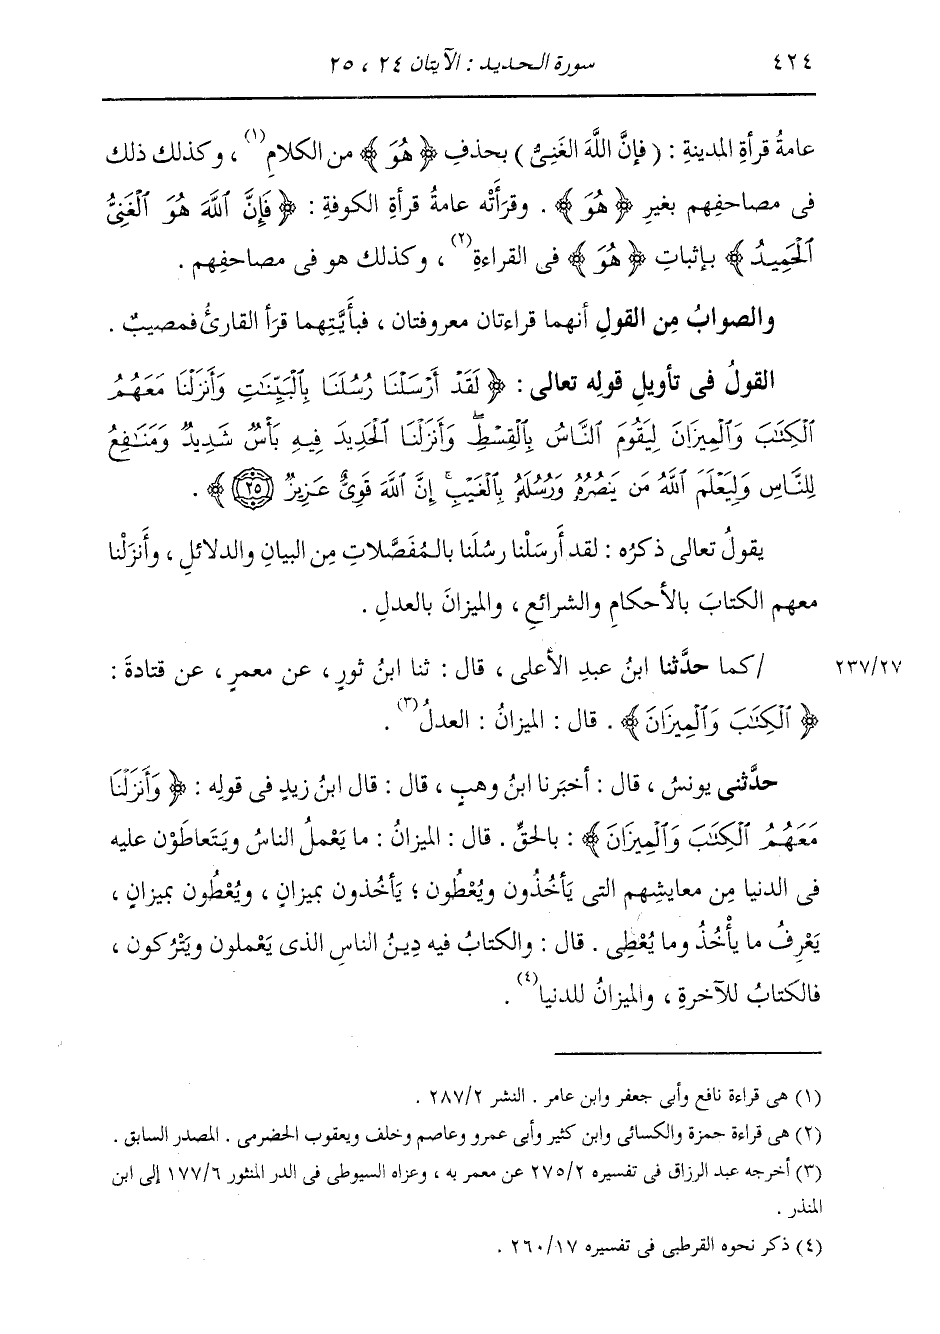 ٤٢٤ سورة الحديد : الآيتان ٢٤ ، ٢٥
عامةُ قرأةِ المدينةِ : ( فإنَّ اللَّهَ الغَنِىُّ ) بحذفِ ﴿ هُوَ ﴾ من الكلامِ(١) ، وكذلك ذلك
فى مصاحفِهم بغيرِ ﴿ هُوَ ﴾ . وقرَأَتْه عامةُ قرأةِ الكوفةِ : ﴿ فَإِنَّ ٱللَّهَ هُوَ ٱلْغَنِىُّ
ٱلْحَمِيدُ ﴾ بإثباتِ ﴿ هُوَ ﴾ فى القراءةِ(٢) ، وكذلك هو فى مصاحفِهم .
والصوابُ مِن القولِ أنهما قراءتان معروفتان ، فبأيَّتِهما قرَأ القارئُ فمصيبٌ .
القولُ فى تأويلِ قولِه تعالى : ﴿ لَقَدْ أَرْسَلْنَا رُسُلَنَا بِٱلْبَيِّنَٰتِ وَأَنزَلْنَا مَعَهُمُ
ٱلْكِتَٰبَ وَٱلْمِيزَانَ لِيَقُومَ ٱلنَّاسُ بِٱلْقِسْطِۖ وَأَنزَلْنَا ٱلْحَدِيدَ فِيهِ بَأْسٌ شَدِيدٌ وَمَنَٰفِعُ
لِلنَّاسِ وَلِيَعْلَمَ ٱللَّهُ مَن يَنصُرُهُۥ وَرُسُلَهُۥ بِٱلْغَيْبِۚ إِنَّ ٱللَّهَ قَوِىٌّ عَزِيزٌ ٢٥ ﴾ .
يقولُ تعالى ذكرُه : لقد أَرسَلْنا رسُلَنا بالـمُفَصَّلاتِ مِن البيانِ والدلائلِ ، وأَنزَلْنا
معهم الكتابَ بالأحكامِ والشرائعِ ، والميزانَ بالعدلِ .
٢٣٧/٢٧ /كما حدَّثنا ابنُ عبدِ الأعلى ، قال : ثنا ابنُ ثورٍ ، عن معمرٍ ، عن قتادةَ :
﴿ ٱلْكِتَٰبَ وَٱلْمِيزَانَ ﴾ . قال : الميزانُ : العدلُ(٣) .
حدَّثنى يونسُ ، قال : أخبَرنا ابنُ وهبٍ ، قال : قال ابنُ زيدٍ فى قولِه : ﴿ وَأَنزَلْنَا
مَعَهُمُ ٱلْكِتَٰبَ وَٱلْمِيزَانَ ﴾ : بالحقِّ . قال : الميزانُ : ما يَعْملُ الناسُ ويَتَعاطَوْن عليه
فى الدنيا مِن معايشِهم التى يَأْخُذُون ويُعْطُون ؛ يَأْخُذون بميزانٍ ، ويُعْطُون بميزانٍ ،
يَعْرِفُ ما يأْخُذُ وما يُعْطِى . قال : والكتابُ فيه دِينُ الناسِ الذى يَعْملون ويَتْرُكون ،
فالكتابُ للآخرةِ ، والميزانُ للدنيا(٤) .
(١) هى قراءة نافع وأبى جعفر وابن عامر . النشر ٢٨٧/٢ .
(٢) هى قراءة حمزة والكسائى وابن كثير وأبى عمرو وعاصم وخلف ويعقوب الحضرمى . المصدر السابق .
(٣) أخرجه عبد الرزاق فى تفسيره ٢٧٥/٢ عن معمر به ، وعزاه السيوطى فى الدر المنثور ١٧٧/٦ إلى ابن
المنذر .
(٤) ذكر نحوه القرطبى فى تفسيره ٢٦٠/١٧ .